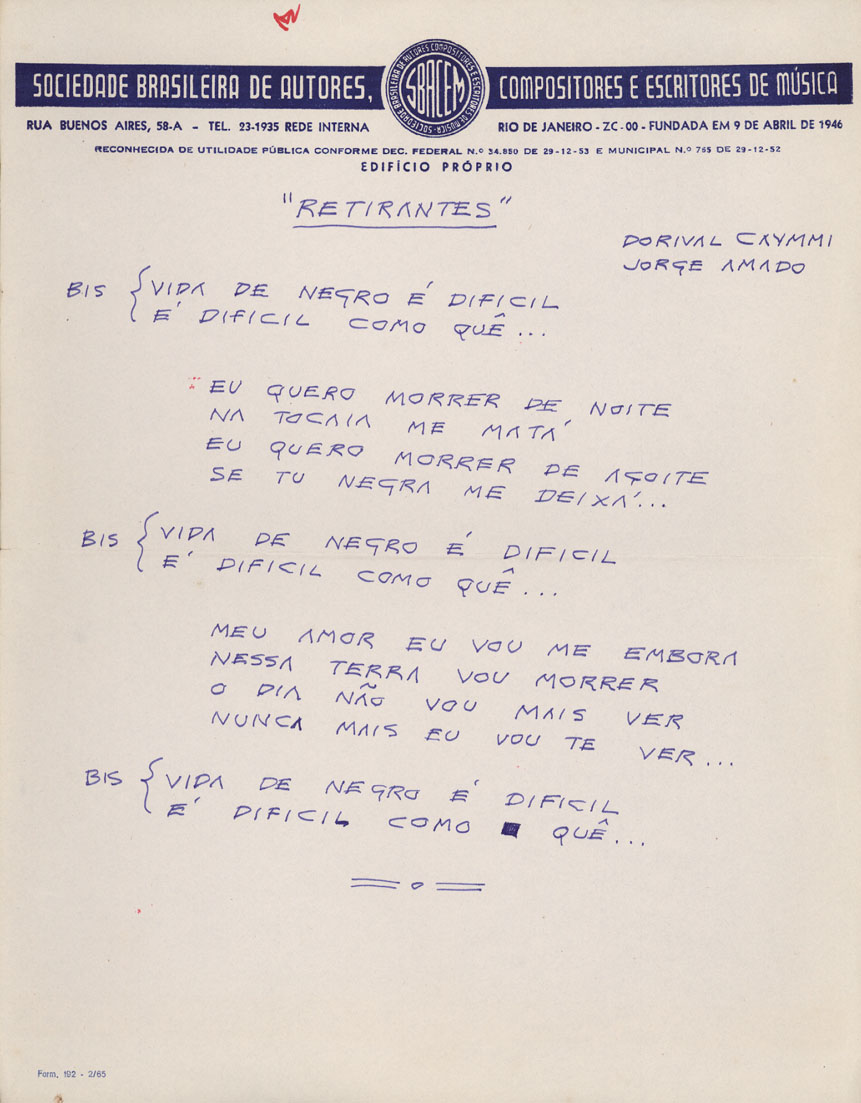 SOCIEDADE BRASILEIRA DE AUTORES, COMPOSITORES E ESCRITORES DE MÚSICA
SBACEM
SOCIEDADE BRASILEIRA DE AUTORES COMPOSITORES E ESCRITORES DE MÚSICA
RUA BUENOS AIRES, 58-A - TEL. 23-1935 REDE INTERNA
RIO DE JANEIRO - ZC-00 - FUNDADA EM 9 DE ABRIL DE 1946
RECONHECIDA DE UTILIDADE PÚBLICA CONFORME DEC. FEDERAL N.º 34.850 DE 29-12-53 E MUNICIPAL N.º 765 DE 29-12-52
EDIFÍCIO PRÓPRIO
"RETIRANTES"
DORIVAL CAYMMI
JORGE AMADO
BIS { VIDA DE NEGRO É DIFICIL
É DIFICIL COMO QUÊ...
EU QUERO MORRER DE NOITE
NA TOCAIA ME MATÁ
EU QUERO MORRER DE AÇOITE
SE TU NEGRA ME DEIXÁ...
BIS { VIDA DE NEGRO É DIFICIL
É DIFICIL COMO QUÊ...
MEU AMOR EU VOU ME EMBORA
NESSA TERRA VOU MORRER
O DIA NÃO VOU MAIS VER
NUNCA MAIS EU VOU TE VER...
BIS { VIDA DE NEGRO É DIFICIL
É DIFICIL COMO QUÊ...
Form. 192 - 2/65